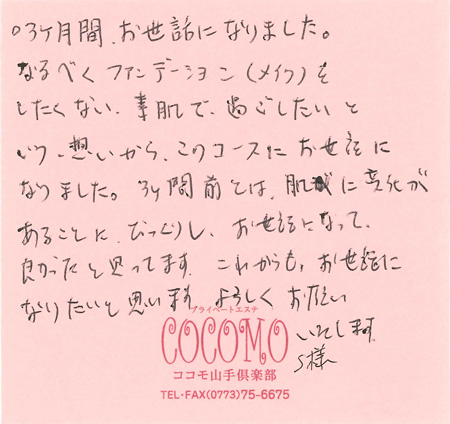 ○3ヶ月間、お世話になりました。
なるべくファンデーション(メイク)を
したくない、素肌で、過ごしたいと
いう、想いから、このコースにお世話に
なりました。3ヶ間前とは、肌に変化が
あることに、びっくりし、お世話になって、
良かったと思ってます。これからも、お世話に
なりたいと思います。よろしくお願い
プライベートエステ
COCOMO いたします。
ココモ山手倶楽部 S様
TEL・FAX(0773)75-6675